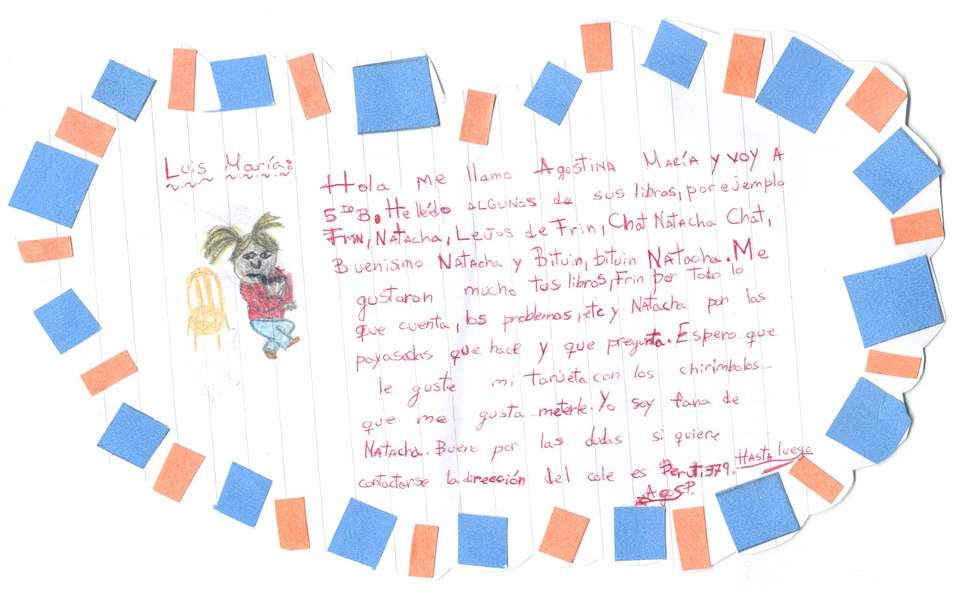 Luis María:
Hola me llamo Agostina María y voy A
5to B. He leído ALGUNOS de sus libros, por ejemplo
Frin, Natacha, Lejos de Frin, Chat Natacha Chat,
Buenismo Natacha y Bituin, bituin Natacha. Me
gustaron mucho tus libros, Frin por todo lo
que cuenta, los problemas, etc y Natacha por las
payasadas que hace y que pregunta. Espero que
le guste mi tarjeta con los chirimbolos
que me gusta meterle. Yo soy fana de
Natacha. Bueno por las dudas si quiere
contactarse la dirección del cole es Beruti 379. HASTA luego
Agos P.